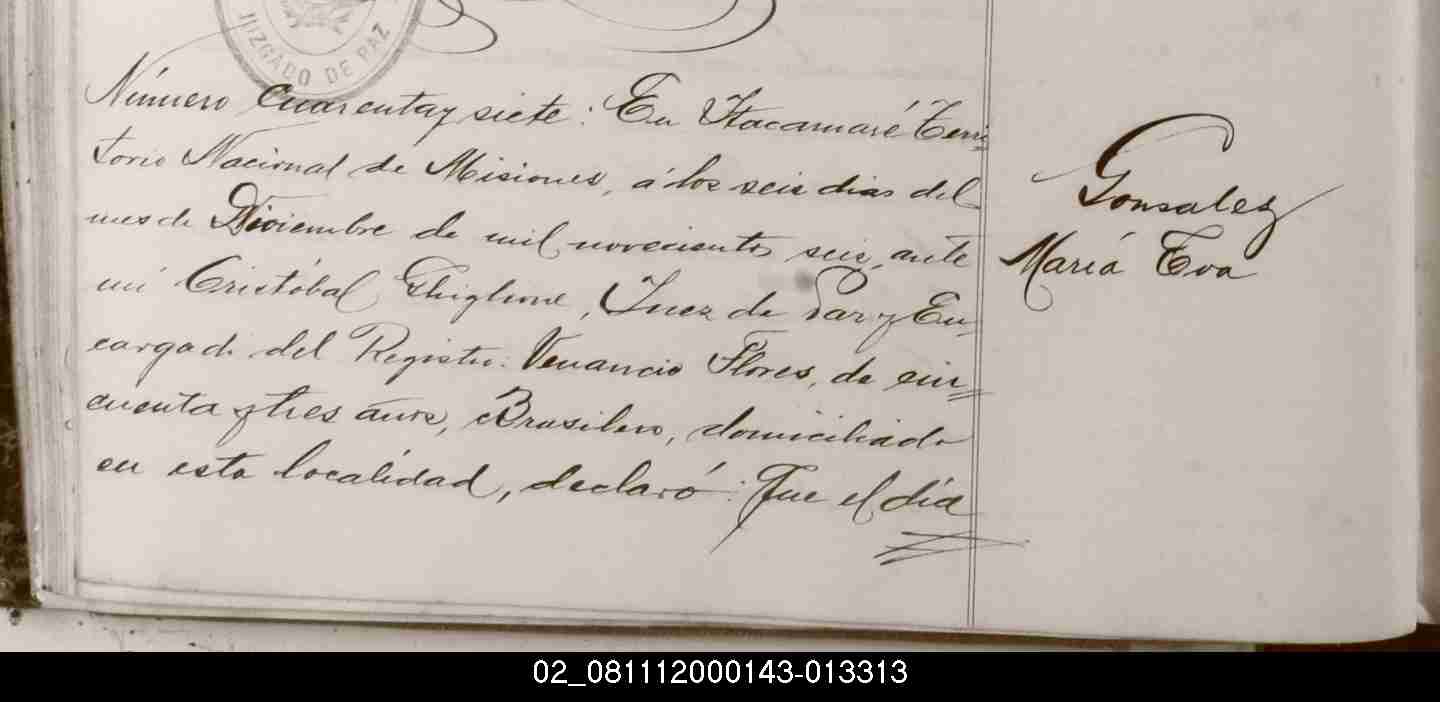 JUZGADO DE PAZ
Número cuarenta y siete: En Itacaruaré Terri
torio Nacional de Misiones, á los seis dias del
mes de Diciembre de mil novecientos seis, ante
mi Cristóbal Ghiglione, Juez de Paz y En
cargado del Registro: Venancio Flores, de cin
cuenta y tres años, Brasilero, domiciliado
en esta localidad, declaró: Que el día
Gonsalez
María Eva
02_081112000143-013313